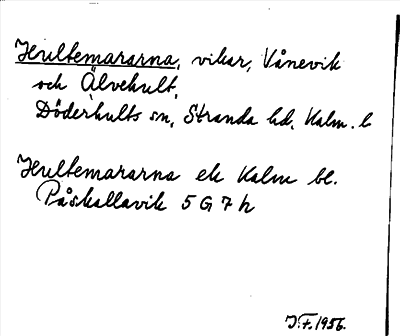 Hultemararna, vikar, Vånevik
och Älvehult,
Döderhults sn, Stranda hd, Kalm. l
Hultemararna ek Kalm bl.
Påskallavik 5 G 7 h
J.F. 1956.